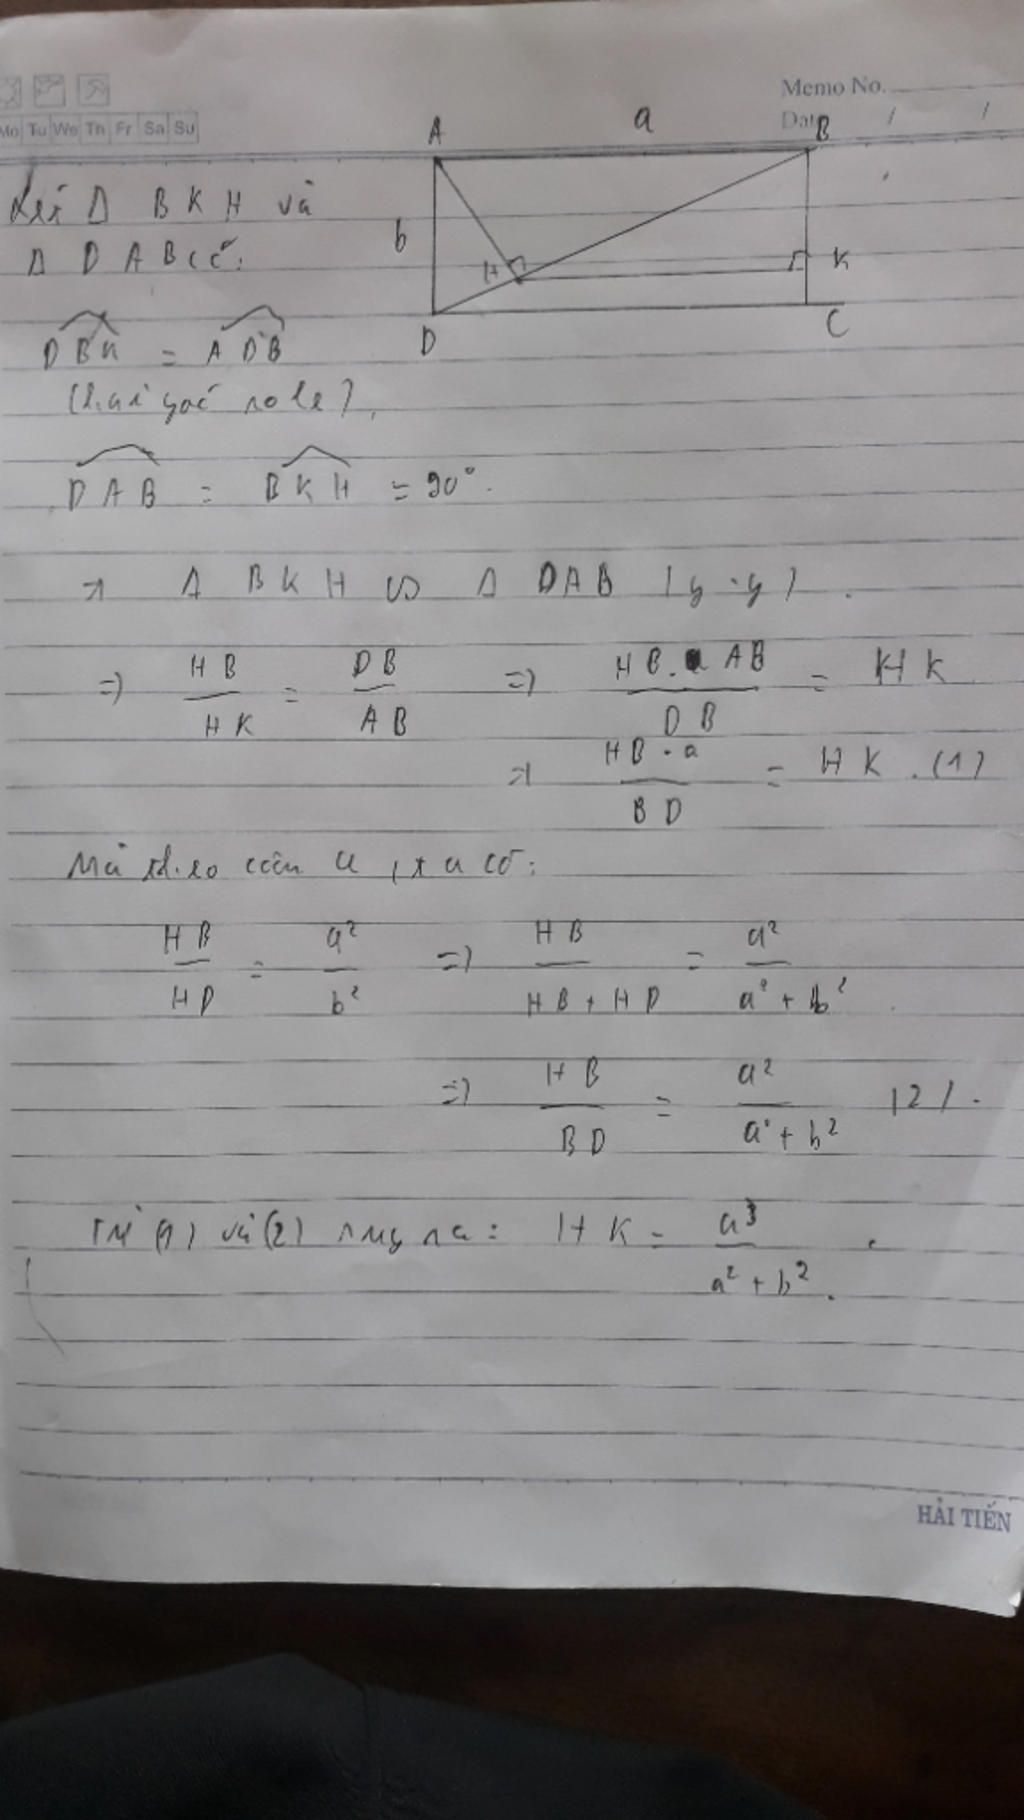 Memo No.
Mo Tu We Th Fr Sa Su
Date / /
A a B
b
H K
D C
Xét Δ BKH và
Δ DAB có:
DBK = ADB
(hai góc so le),
DAB = BKH = 90°.
=> Δ BKH ∽ Δ DAB (g.g).
=> HB/HK = DB/AB => HB.AB/DB = HK
=> HB.a/BD = HK. (1)
Mà theo câu a, ta có:
HB/HD = a²/b² => HB/HB+HD = a²/a²+b²
=> HB/BD = a²/a²+b² (2).
Từ (1) và (2) suy ra: HK = a³/a²+b².
HẢI TIẾN